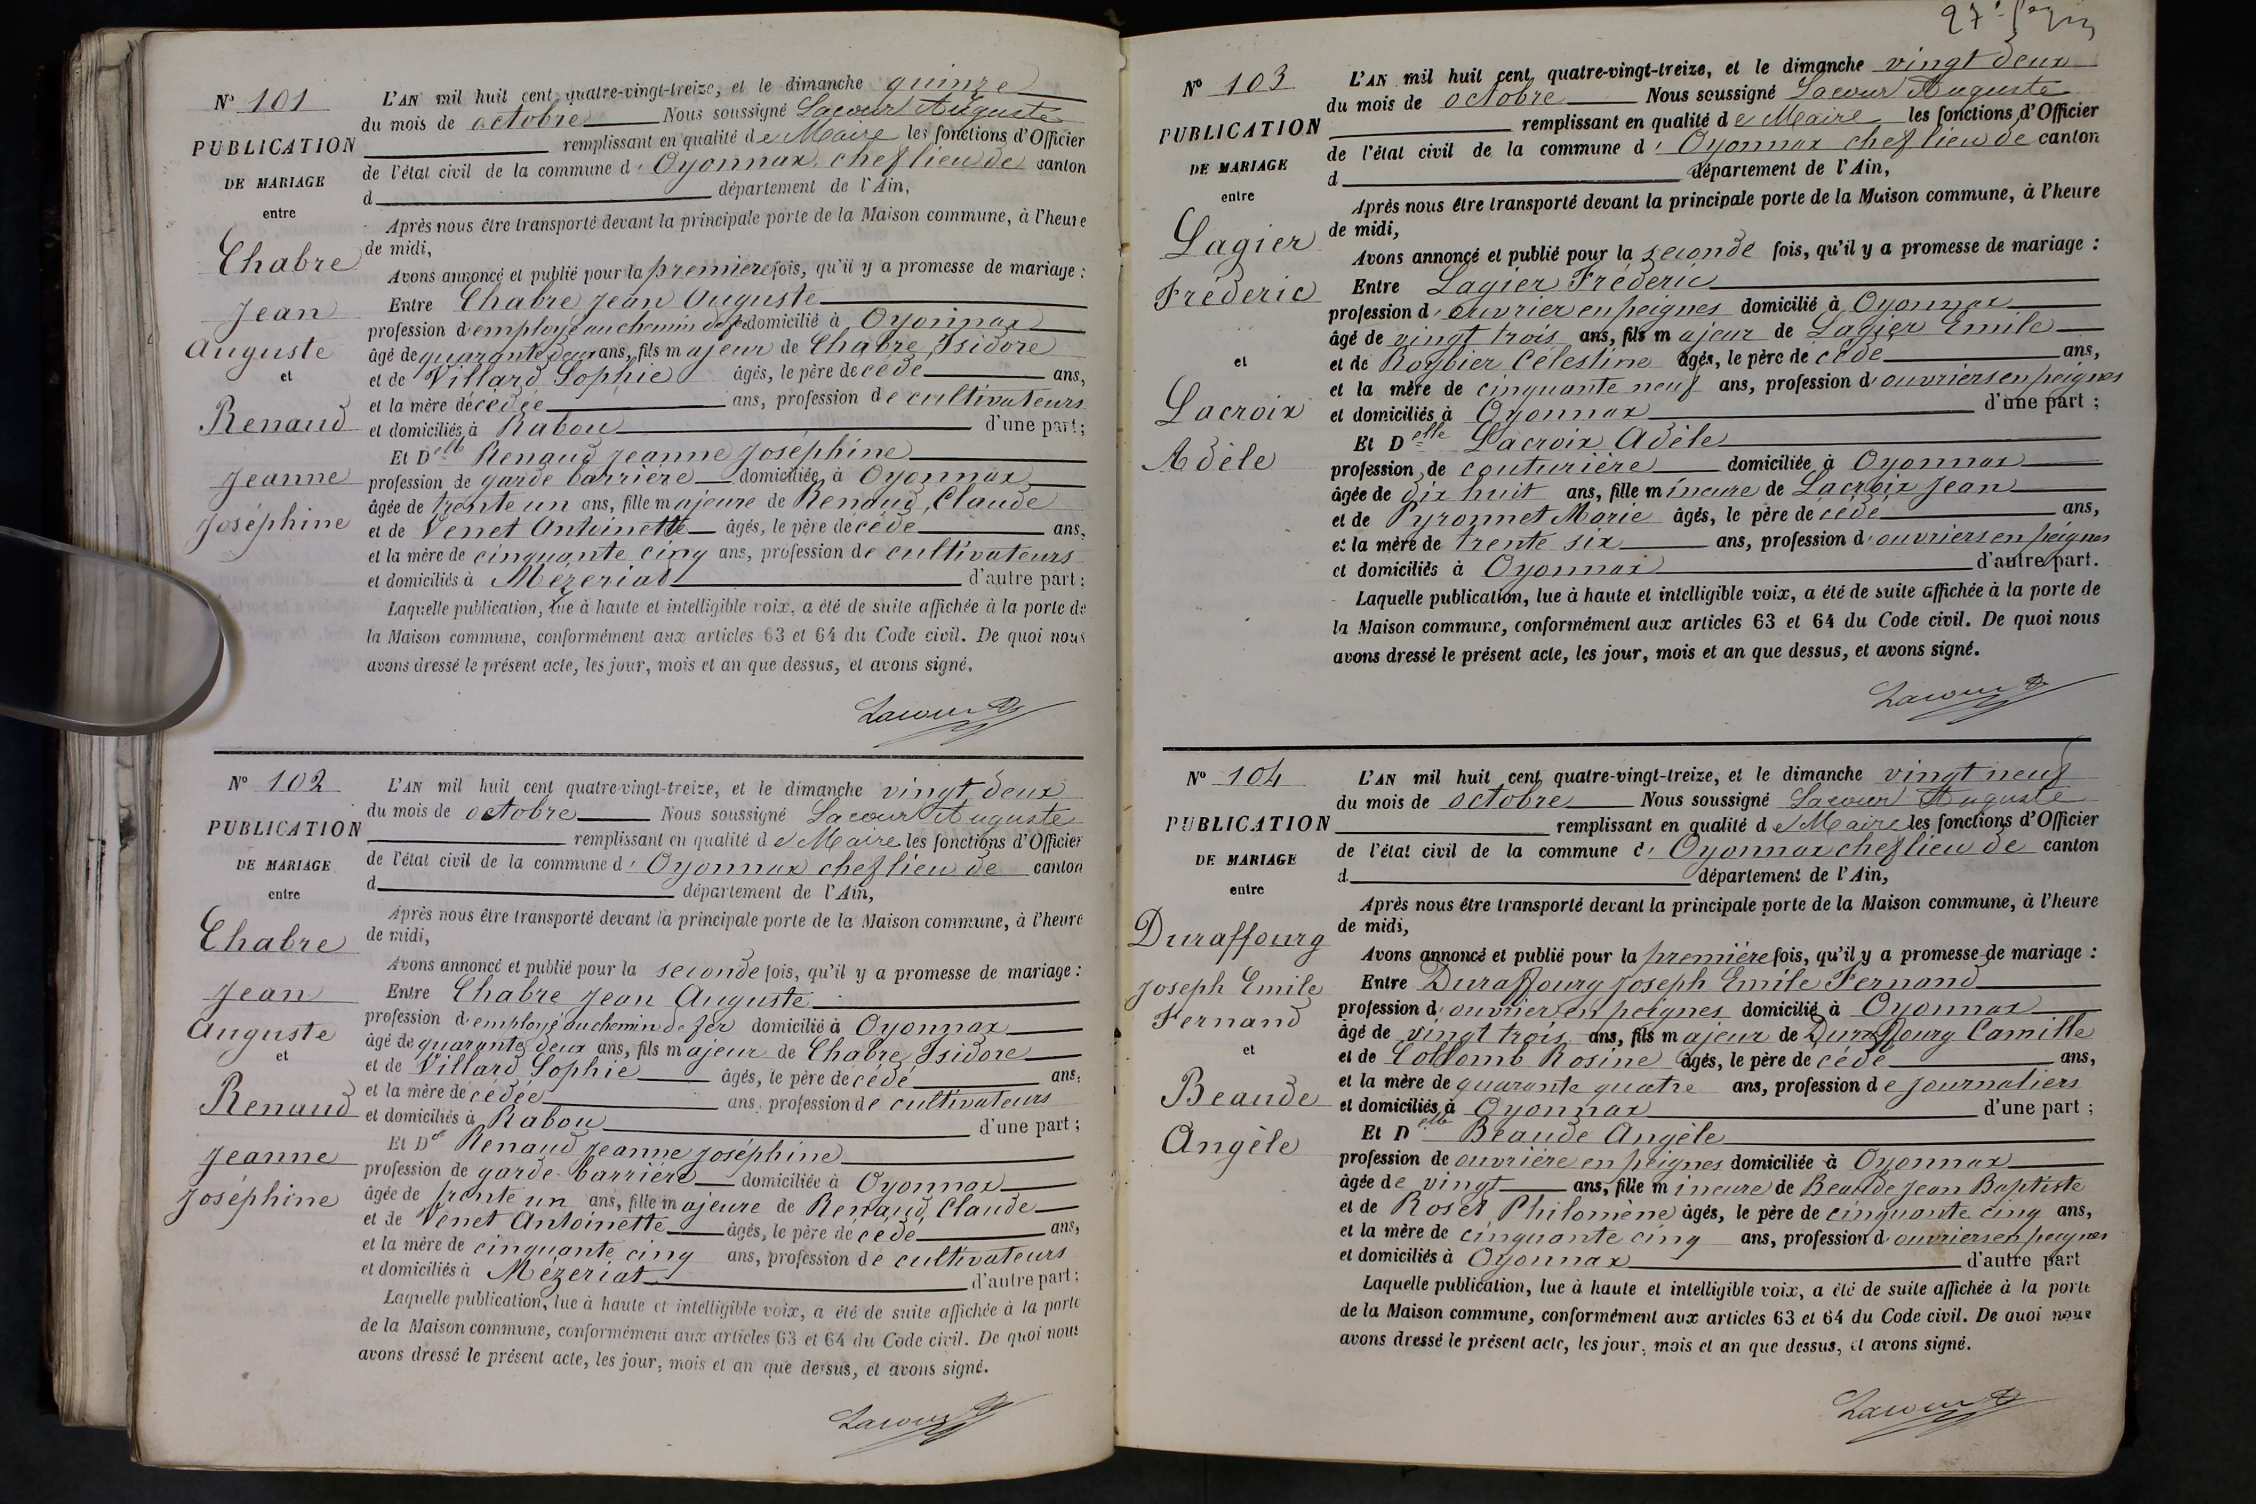 N° 101
PUBLICATION
DE MARIAGE
entre
Chabre
Jean
Auguste
et
Renaud
Jeanne
Joséphine
L'AN mil huit cent quatre-vingt-treize, et le dimanche quinze
du mois de octobre Nous soussigné Lacour Auguste
remplissant en qualité de Maire les fonctions d'Officier
de l'état civil de la commune d' Oyonnax chef lieu de canton
d département de l'Ain,
Après nous être transporté devant la principale porte de la Maison commune, à l'heure
de midi,
Avons annoncé et publié pour la première fois, qu'il y a promesse de mariage :
Entre Chabre Jean Auguste
profession d'employé au chemin de fer domicilié à Oyonnax
âgé de quarante deux ans, fils majeur de Chabre Isidore
et de Villard Sophie âgés, le père décédé ans,
et la mère décédée ans, profession de cultivateurs
et domiciliés à Rabou d'une part ;
Et Delle Renaud Jeanne Joséphine
profession de garde barrière domiciliée à Oyonnax
âgée de trente un ans, fille majeure de Renaud Claude
et de Venet Antoinette âgés, le père décédé ans,
et la mère de cinquante cinq ans, profession de cultivateurs
et domiciliés à Mézeriat d'autre part ;
Laquelle publication, lue à haute et intelligible voix, a été de suite affichée à la porte de
la Maison commune, conformément aux articles 63 et 64 du Code civil. De quoi nous
avons dressé le présent acte, les jour, mois et an que dessus, et avons signé.
Lacour A
N° 102
PUBLICATION
DE MARIAGE
entre
Chabre
Jean
Auguste
et
Renaud
Jeanne
Joséphine
L'AN mil huit cent quatre-vingt-treize, et le dimanche vingt deux
du mois de octobre Nous soussigné Lacour Auguste
remplissant en qualité de Maire les fonctions d'Officier
de l'état civil de la commune d' Oyonnax chef lieu de canton
d département de l'Ain,
Après nous être transporté devant la principale porte de la Maison commune, à l'heure
de midi,
Avons annoncé et publié pour la seconde fois, qu'il y a promesse de mariage :
Entre Chabre Jean Auguste
profession d'employé au chemin de fer domicilié à Oyonnax
âgé de quarante deux ans, fils majeur de Chabre Isidore
et de Villard Sophie âgés, le père décédé ans,
et la mère décédée ans, profession de cultivateurs
et domiciliés à Rabou d'une part ;
Et Delle Renaud Jeanne Joséphine
profession de garde-barrière domiciliée à Oyonnax
âgée de trente un ans, fille majeure de Renaud Claude
et de Venet Antoinette âgés, le père décédé ans,
et la mère de cinquante cinq ans, profession de cultivateurs
et domiciliés à Mézeriat d'autre part ;
Laquelle publication, lue à haute et intelligible voix, a été de suite affichée à la porte
de la Maison commune, conformément aux articles 63 et 64 du Code civil. De quoi nous
avons dressé le présent acte, les jour, mois et an que dessus, et avons signé.
Lacour A
27e
N° 103
PUBLICATION
DE MARIAGE
entre
Lagier
Fréderic
et
Lacroix
Adèle
L'AN mil huit cent quatre-vingt-treize, et le dimanche vingt deux
du mois de octobre Nous soussigné Lacour Auguste
remplissant en qualité de Maire les fonctions d'Officier
de l'état civil de la commune d' Oyonnax chef lieu de canton
d département de l'Ain,
Après nous être transporté devant la principale porte de la Maison commune, à l'heure
de midi,
Avons annoncé et publié pour la seconde fois, qu'il y a promesse de mariage :
Entre Lagier Fréderic
profession d'ouvrier en peignes domicilié à Oyonnax
âgé de vingt trois ans, fils majeur de Lagier Emile
et de Roybier Célestine âgés, le père décédé ans,
et la mère de cinquante neuf ans, profession d'ouvriers en peignes
et domiciliés à Oyonnax d'une part ;
Et Delle Lacroix Adèle
profession de couturière domiciliée à Oyonnax
âgée de dix huit ans, fille mineure de Lacroix Jean
et de Pyronnet Marie âgés, le père décédé ans,
et la mère de trente six ans, profession d'ouvriers en peignes
et domiciliés à Oyonnax d'autre part.
Laquelle publication, lue à haute et intelligible voix, a été de suite affichée à la porte de
la Maison commune, conformément aux articles 63 et 64 du Code civil. De quoi nous
avons dressé le présent acte, les jour, mois et an que dessus, et avons signé.
Lacour A
N° 104
PUBLICATION
DE MARIAGE
entre
Duraffourg
Joseph Emile
Fernand
et
Beaude
Angèle
L'AN mil huit cent quatre-vingt-treize, et le dimanche vingt neuf
du mois de octobre Nous soussigné Lacour Auguste
remplissant en qualité de Maire les fonctions d'Officier
de l'état civil de la commune d' Oyonnax chef lieu de canton
d département de l'Ain,
Après nous être transporté devant la principale porte de la Maison commune, à l'heure
de midi,
Avons annoncé et publié pour la première fois, qu'il y a promesse de mariage :
Entre Duraffourg Joseph Emile Fernand
profession d'ouvrier en peignes domicilié à Oyonnax
âgé de vingt trois ans, fils majeur de Duraffourg Camille
et de Collomb Rosine âgés, le père décédé ans,
et la mère de quarante quatre ans, profession de journaliers
et domiciliés à Oyonnax d'une part ;
Et Delle Beaude Angèle
profession de ouvrière en peignes domiciliée à Oyonnax
âgée de vingt ans, fille mineure de Beaude Jean Baptiste
et de Roset Philomène âgés, le père de cinquante cinq ans,
et la mère de cinquante cinq ans, profession d'ouvriers en peignes
et domiciliés à Oyonnax d'autre part
Laquelle publication, lue à haute et intelligible voix, a été de suite affichée à la porte
de la Maison commune, conformément aux articles 63 et 64 du Code civil. De quoi nous
avons dressé le présent acte, les jour, mois et an que dessus, et avons signé.
Lacour A